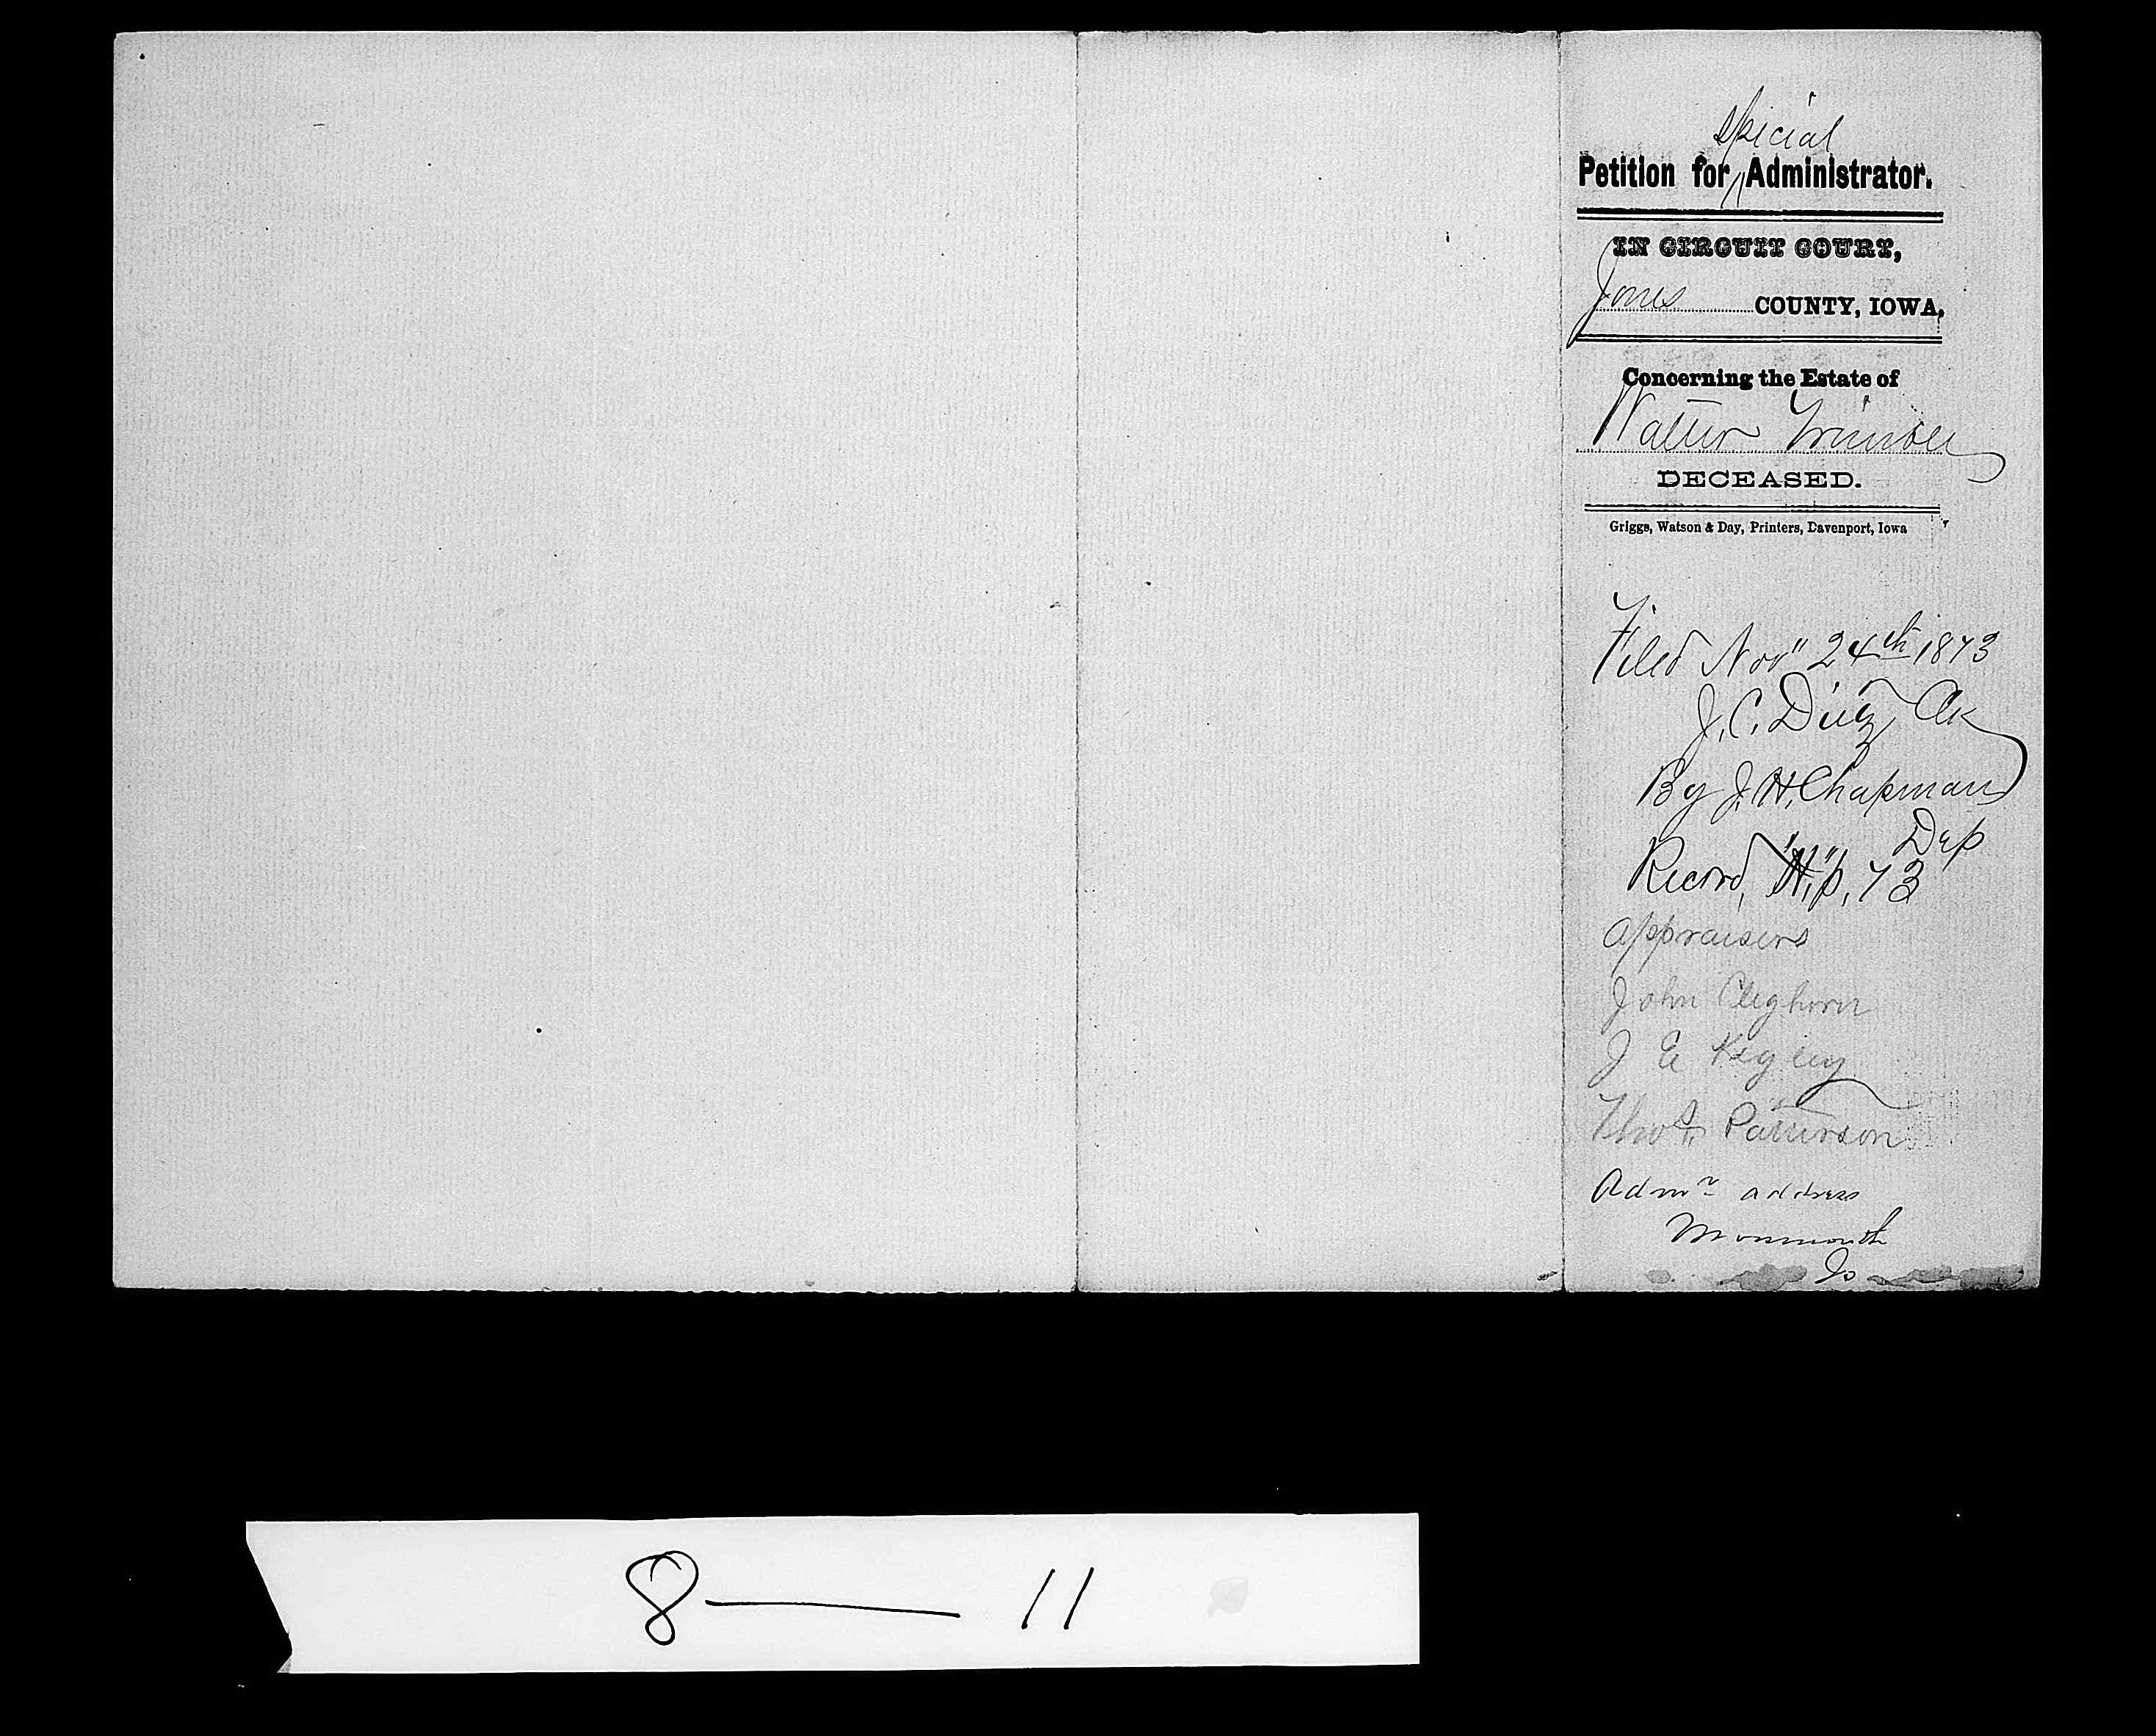 special
Petition for Administrator.
IN CIRCUIT COURT,
Jones COUNTY, IOWA,
Concerning the Estate of
Walter
DECEASED.
Griggs, Watson & Day, Printers, Davenport, Iowa
Filed Nov" 24th 1873
J. C. Dietz Clk
By J. H. Chapman
Dep
Record, "H", p, 73
Appraisers
John Cleghorn
J E Kegley
Thos. Patterson
Admr address
Monmouth
Io
8 — 11